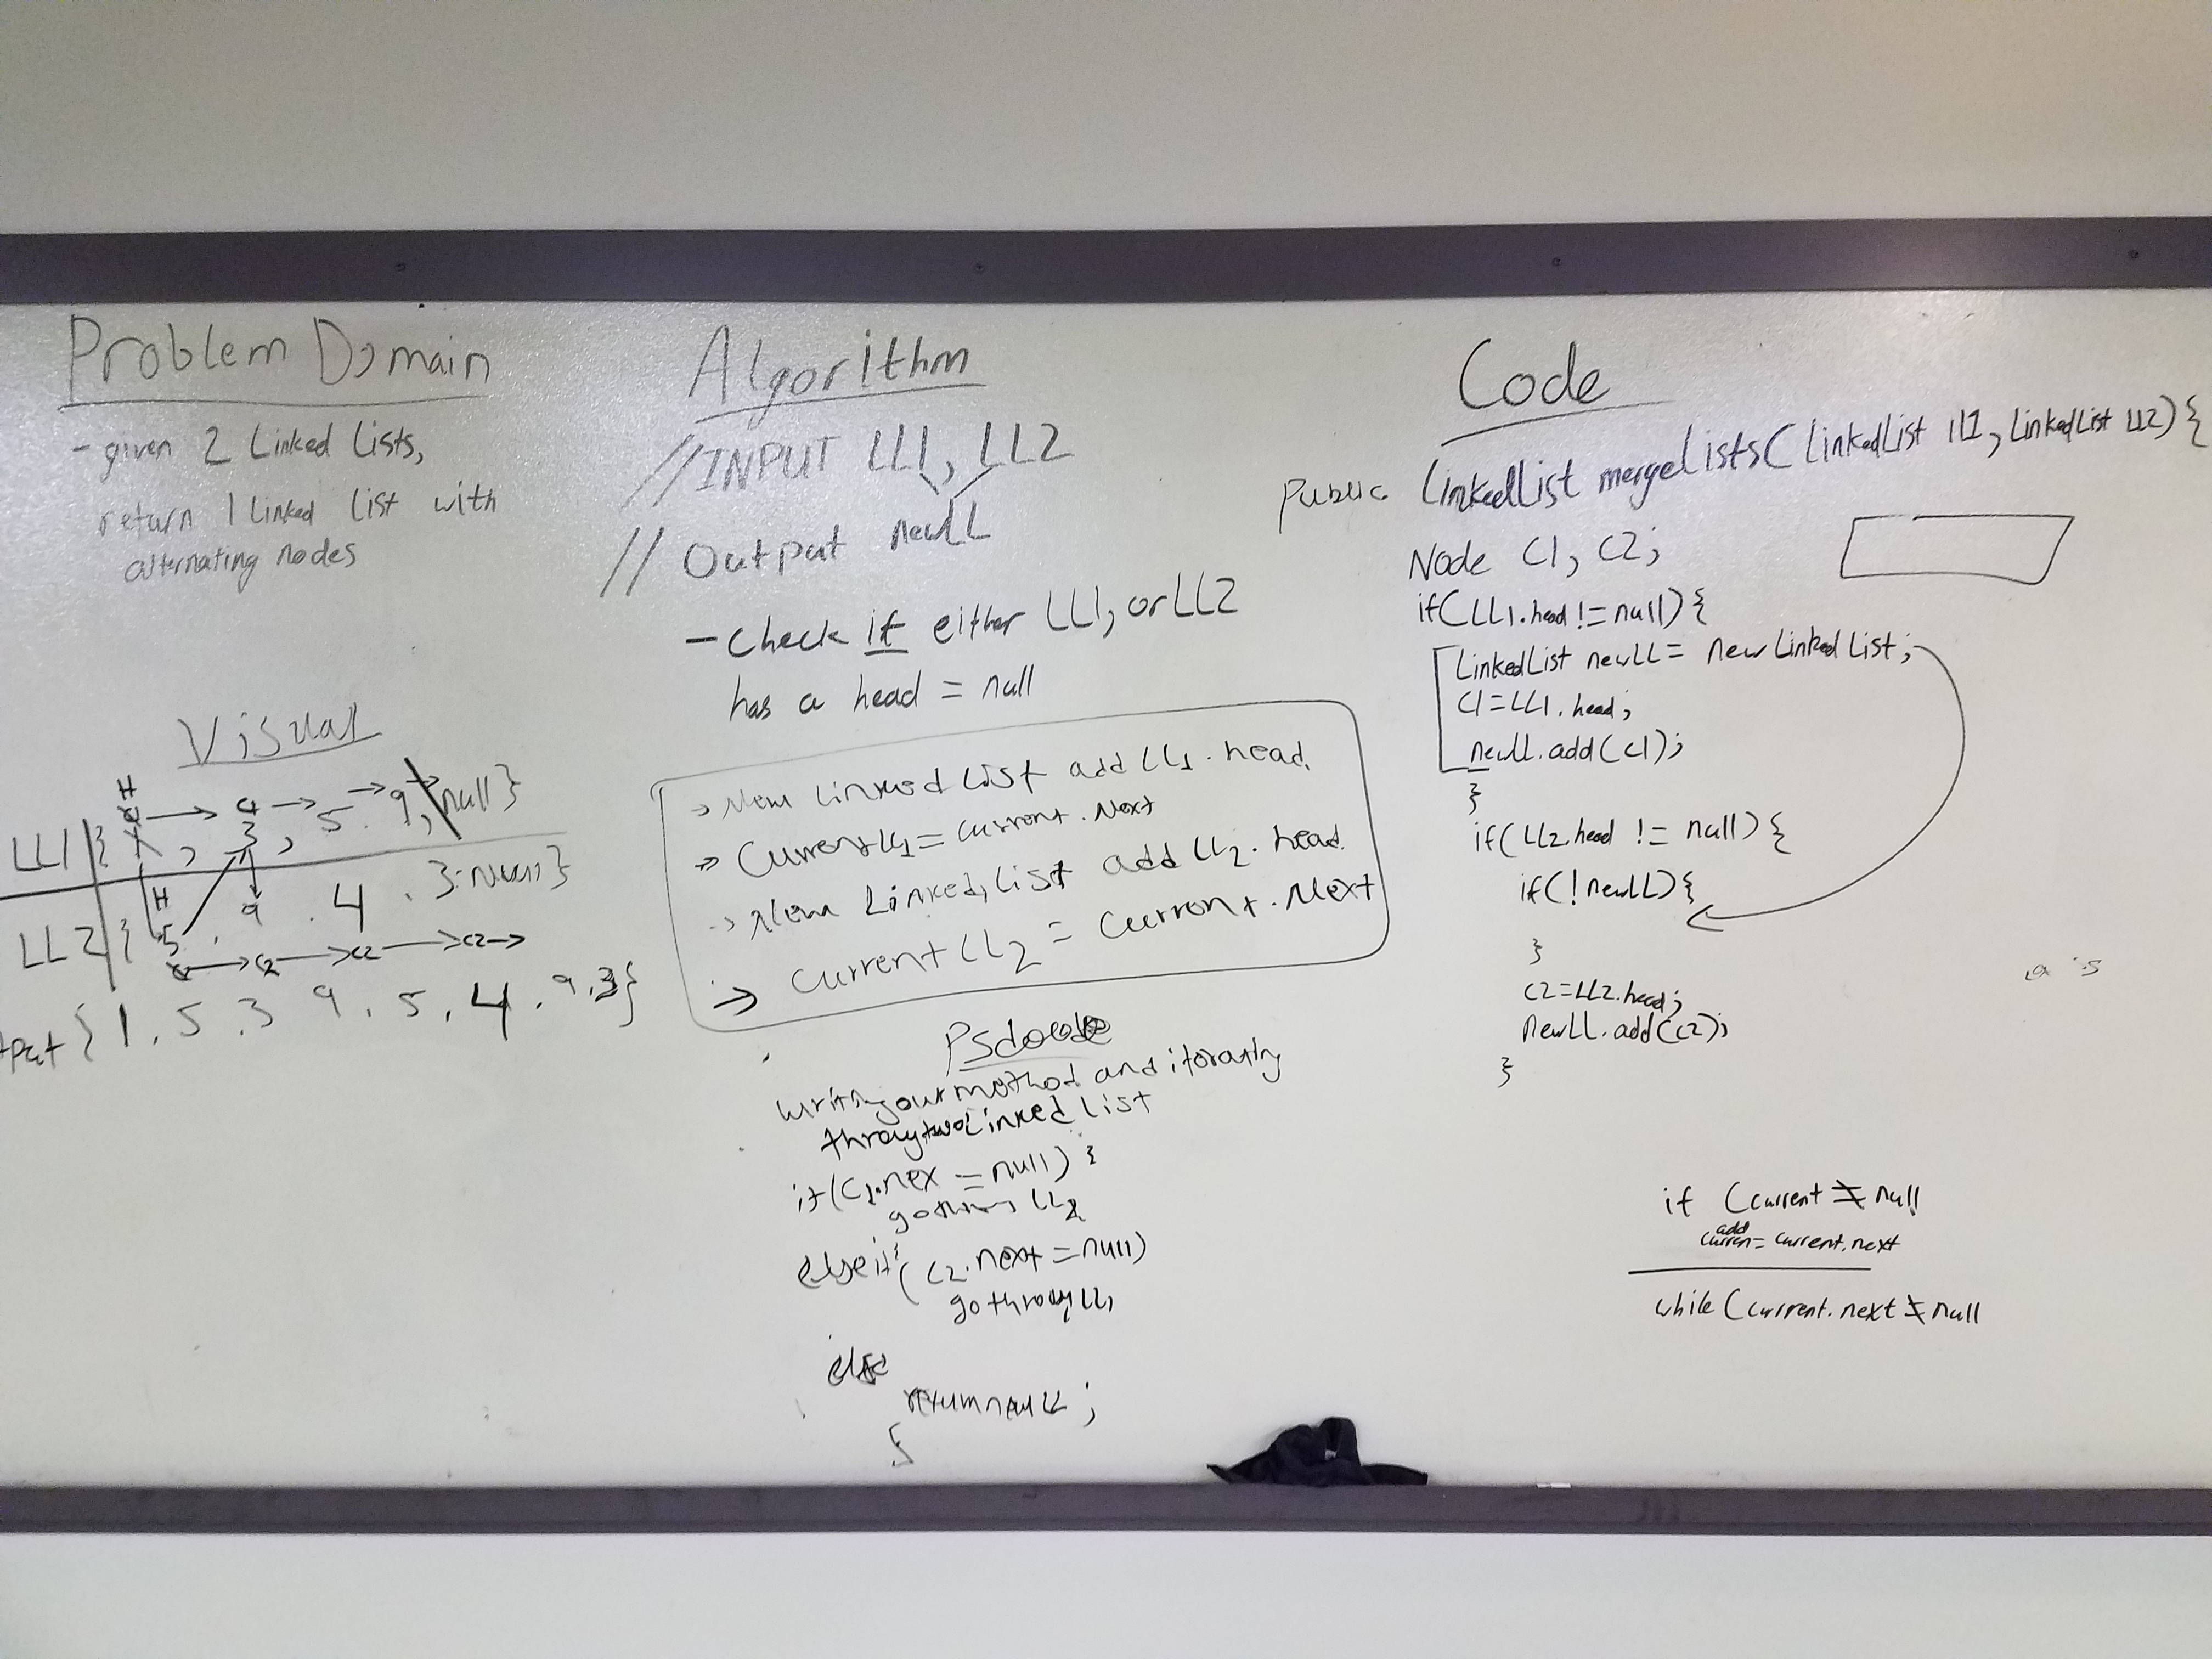 Problem Domain
- given 2 Linked Lists,
return 1 Linked List with
alternating nodes
Visual
H
LL1 { 1, 3, 5 9, null}
H
LL2 { 5 . 9 . 4 . 3
c2 c2 c2
{1 . 5 . 3 9 . 5 . 4 . 9 . 3}
Algorithm
//INPUT LL1, LL2
// Output newLL
- check if either LL1, or LL2
has a head = null
→ New Linked List add LL1 . head
→ Current LL1 = Current . Next
→ New Linked List add LL2 . head
→ Current LL2 = Current . Next
Psdocode
our method and
two Linked List
if (C1.nex = null) {
LL2
else if (C2.next = null)
go LL1
else
return newLL ;
}
Code
Public LinkedList mergeLists( LinkedList LL1, LinkedList LL2) {
Node C1, C2;
if(LL1.head != null) {
LinkedList newLL = new Linked List;
C1 = LL1 . head;
newLL.add(c1);
}
if(LL2.head != null) {
if(! newLL) {
}
C2 = LL2.head;
newLL.add(c2);
}
if (current ≠ null
add
curren = current.next
while (current.next ≠ null